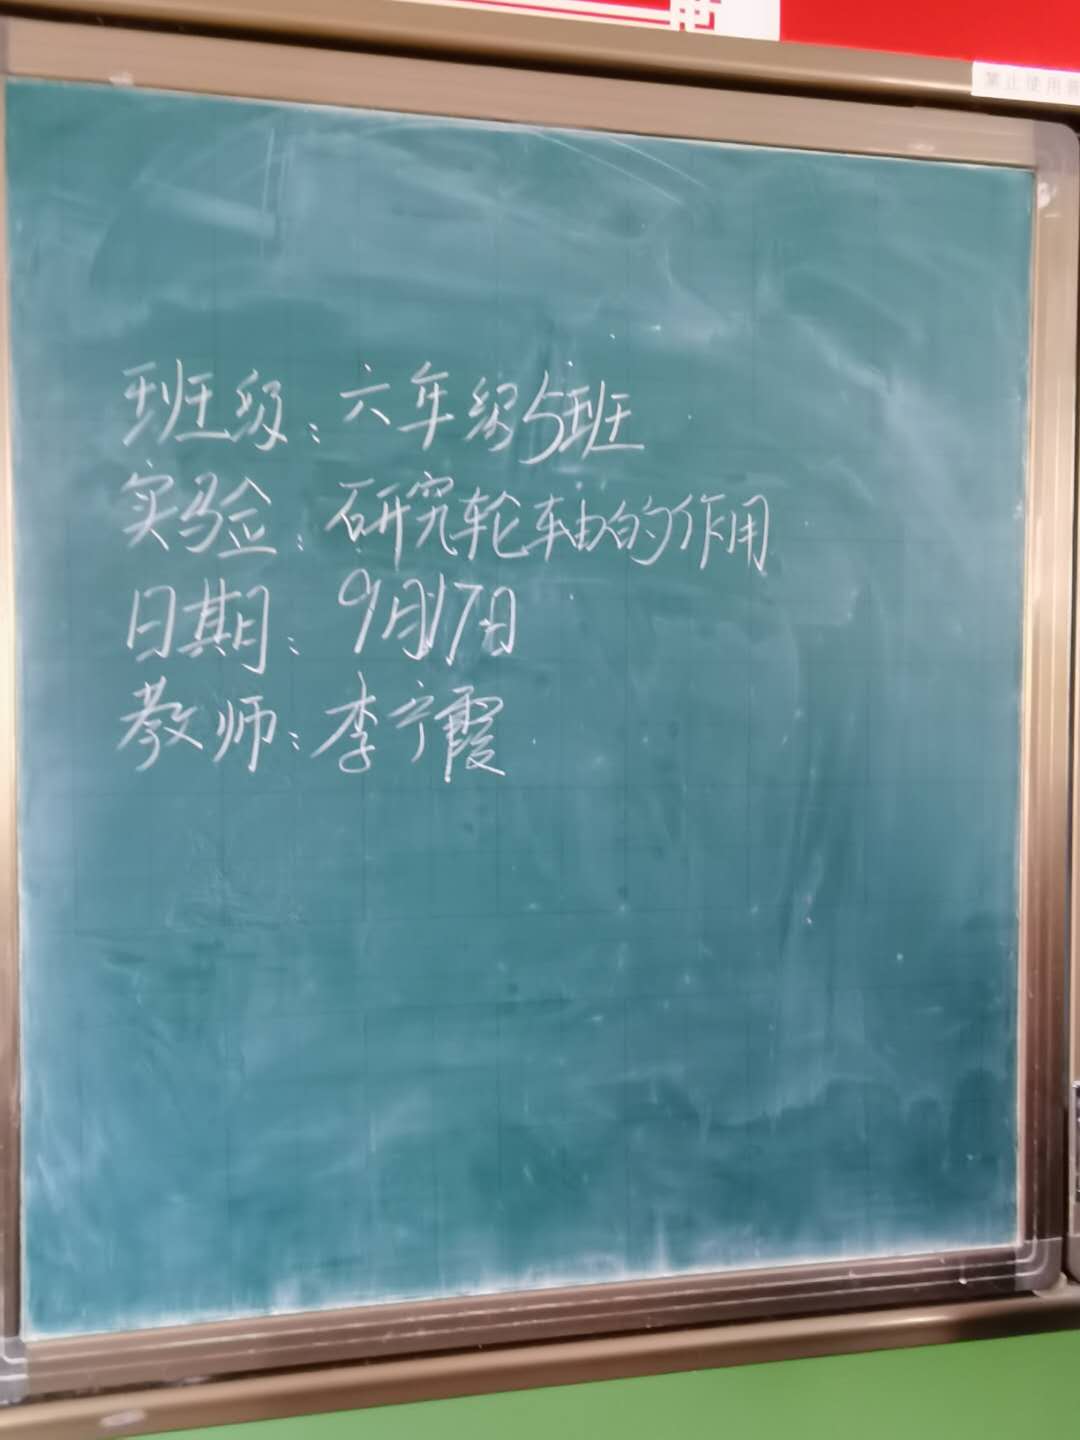 禁止使用普
班级：六年级5班
实验：研究轮轴的作用
日期：9月17日
教师：李宁霞